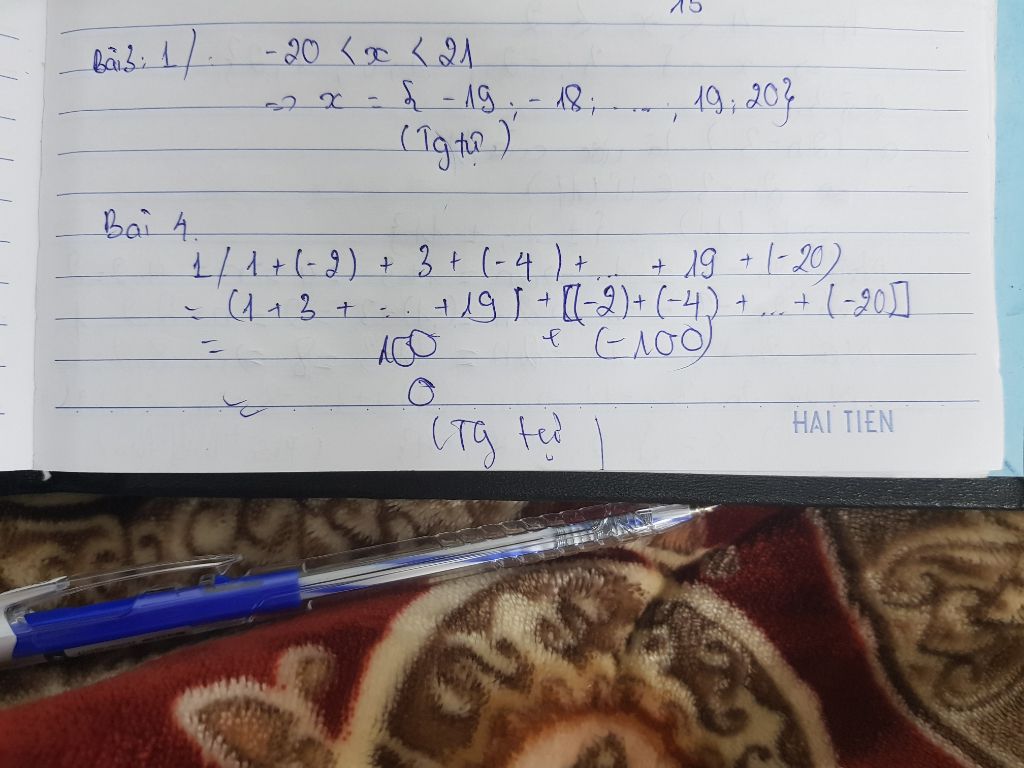 15
Bài 3: 1/. -20 < x < 21
=> x = { -19; -18; ...., 19; 20}
(Tg tự)
Bài 4.
1/ 1 + (-2) + 3 + (-4) + ... + 19 + (-20)
= (1 + 3 + ... + 19) + [(-2) + (-4) + ... + (-20)]
= 100 + (-100)
= 0
(Tg tự)
HAI TIEN